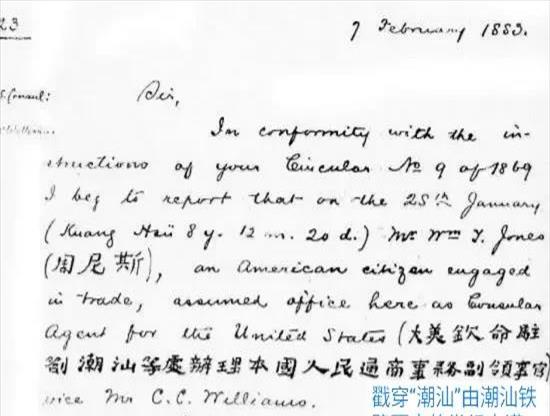 23
7 February 1883.
Sir,
In conformity with the in-
structions of your Circular No 9 of 1869
I beg to report that on the 25th January
(Kuang Hsü 8 y. 12 m. 20 d.) Mr Wm Y. Jones
(周尼斯), an American citizen engaged
in trade, assumed office here as Consular
Agent for the United States (大美欽命駐
劄潮汕等處辦理本國人民通商事務副領事官
vice Mr C. C. Williams.
戳穿“潮汕”由潮汕铁